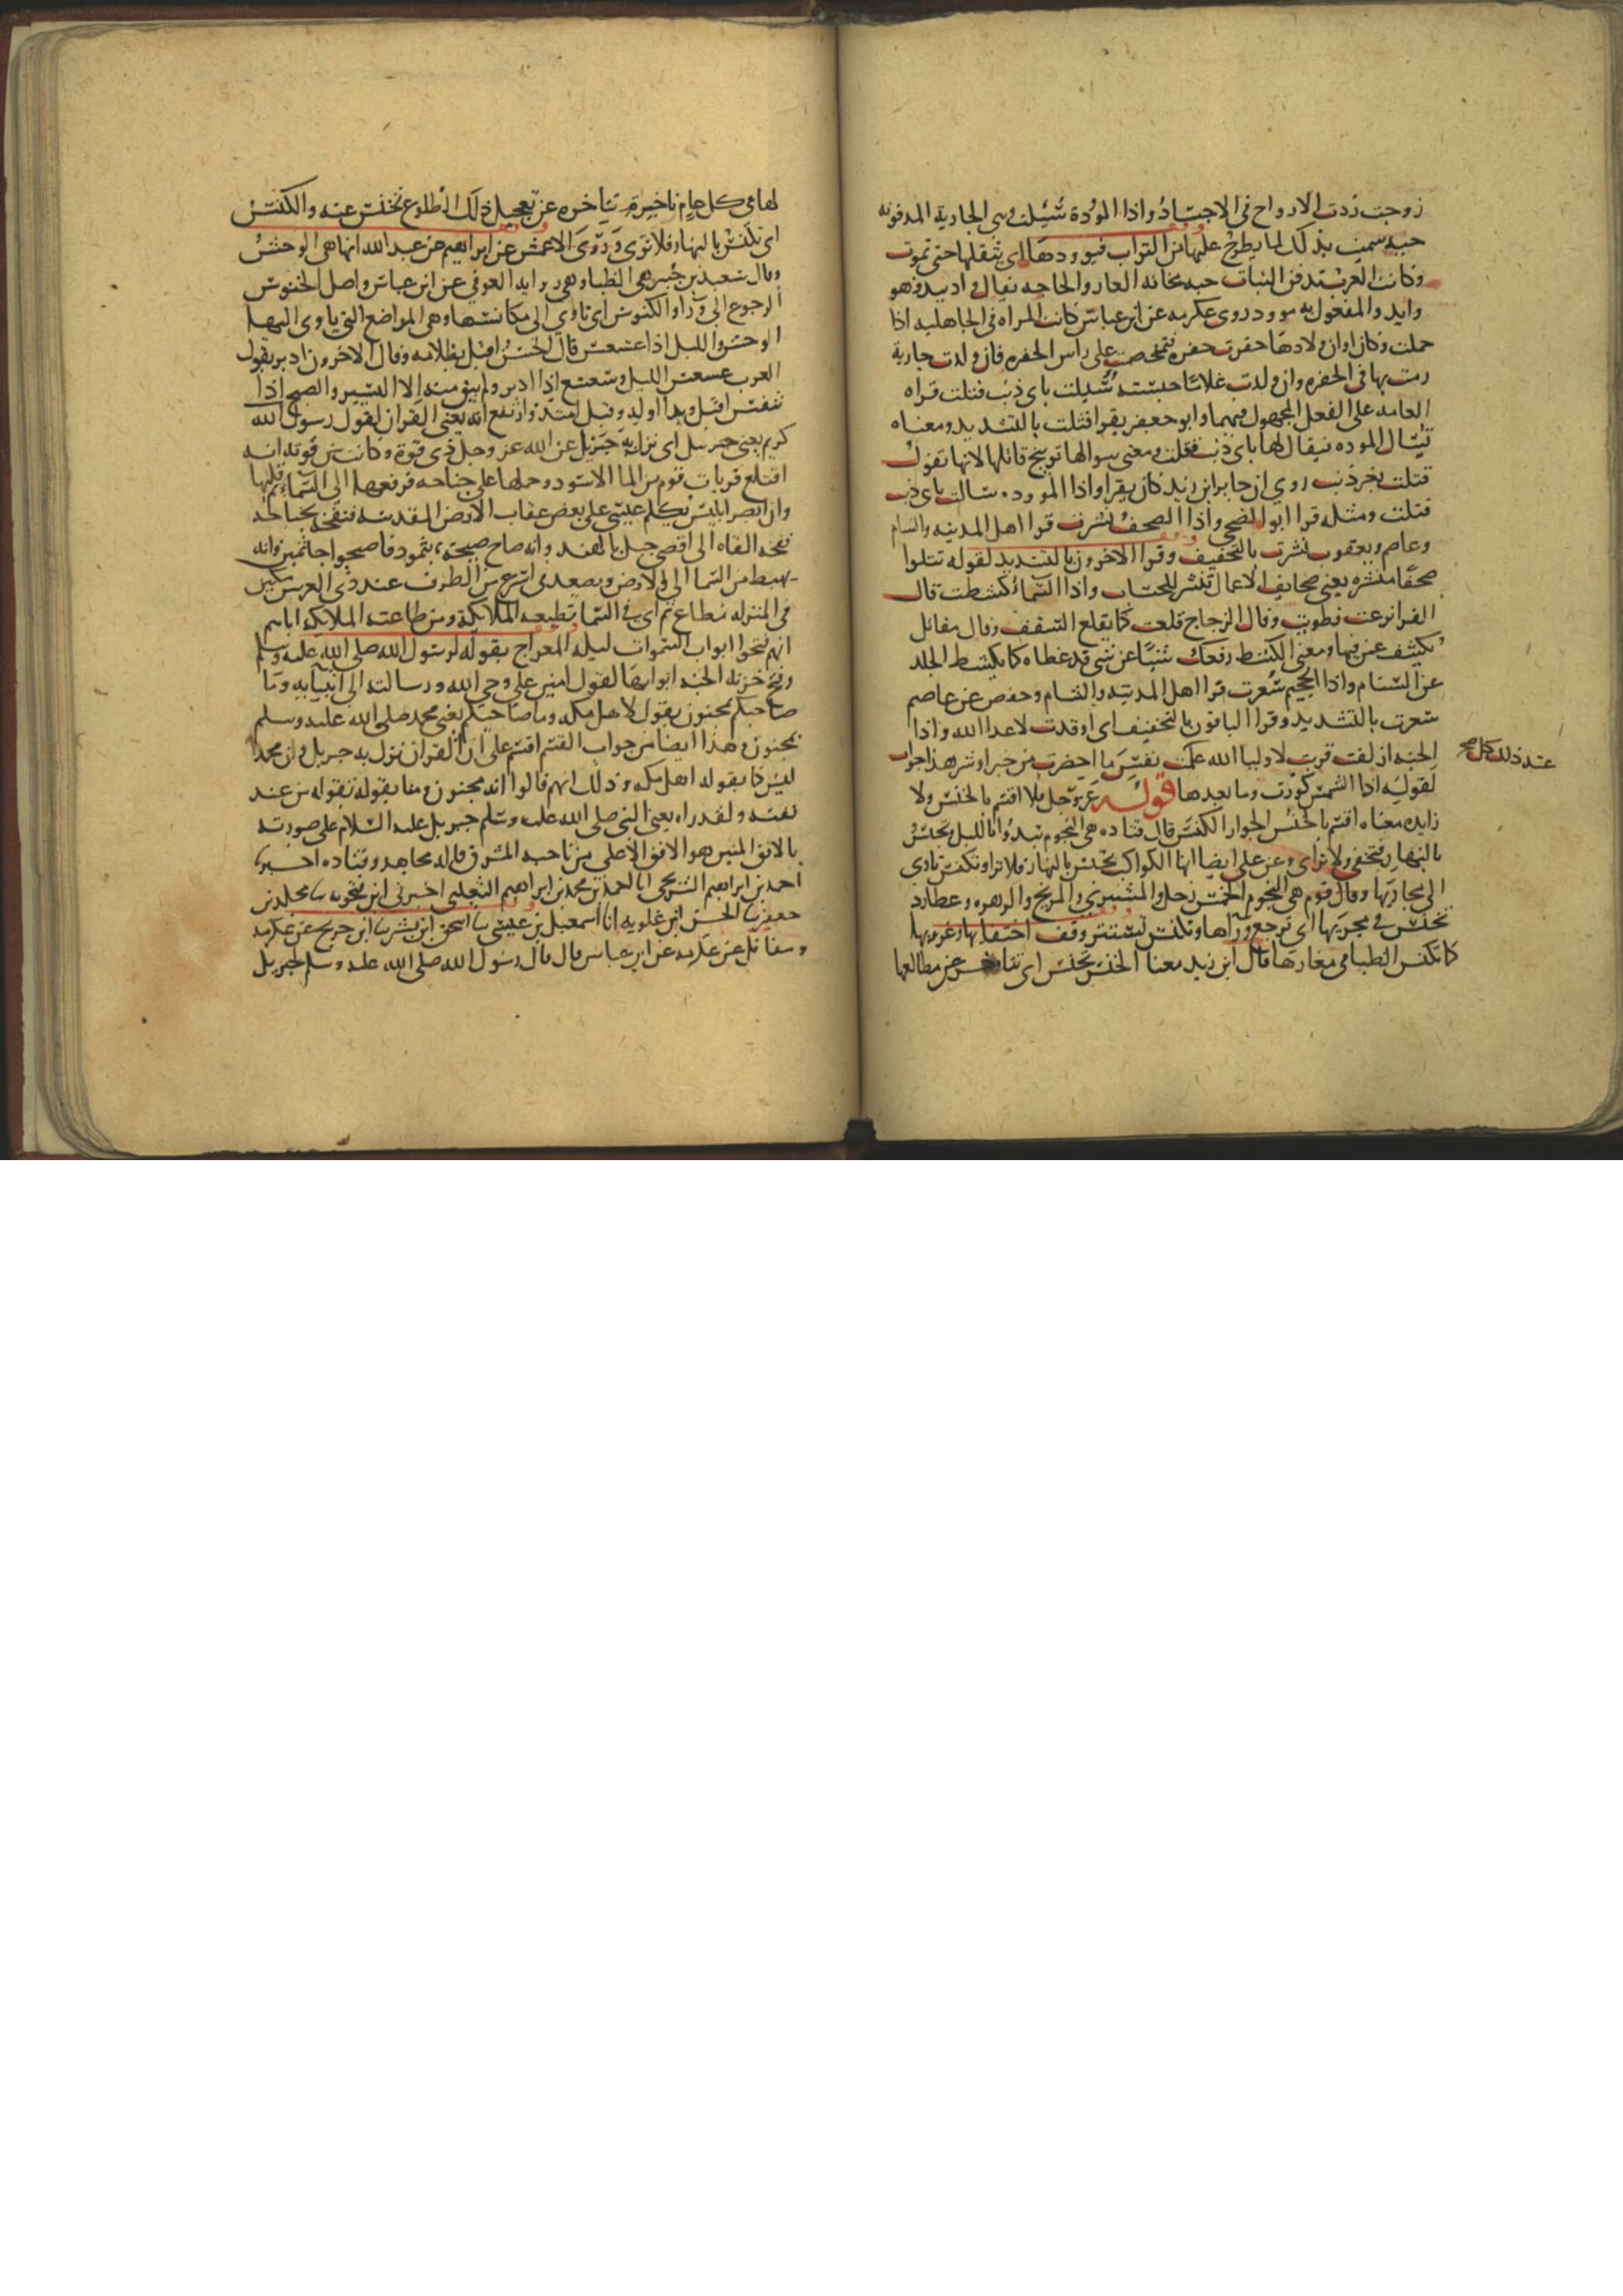 زوجت ردت الارواح في الاجساد واذا الموءدة سئلت وهي الجارية المدفونه
حيه سميت بذلك لما يطرح عليها من التراب فيوودها اي يثقلها حتى تموت
وكانت العرب تدفن البنات حيه مخافه العار والحاجه يقال واد يد فهو
وايد والمفعول به موود روى عكرمه عن ابن عباس كانت المراه في الجاهليه اذا
حملت وكان اوان ولادها حفرت حفره فتمخضت على راس الحفره فان ولدت جارية
رمت بها في الحفره وان ولدت غلاما حبسته سئلت باي ذنب قتلت قراه
العامه على الفعل المجهول فيهما وابو جعفر يقرا قتلت بالتشديد ومعناه
تسال الموده فيقال لها باي ذنب قتلت ومعنى سوالها توبيخ قاتلها لانها تقول
قتلت بغير ذنب روي ان جابر ابن زيد كان يقرا واذا الموودة سالت باي ذنب
قتلت ومثله قرا ابو الضحى واذا الصحف نشرت قرا اهل المدينه والشام
وعاصم ويعقوب نشرت بالتخفيف وقرا الاخرون بالتشديد لقوله تتلوا
صحفا منشره يعني صحايف الاعمال تنشر للحساب واذا السماء كشطت قال
الفرا نزعت فطويت وقال الزجاج قلعت كما يقلع السقف وقال مقاتل
تكشف عن فيها ومعنى الكشط رفعك شيئا عن شي قد غطاه كما يكشط الجلد
عن السنام واذا الجحيم سعرت قرا اهل المدينه والشام وحفص عن عاصم
سعرت بالتشديد وقرا الباقون بالتخفيف اي اوقدت لاعدا الله واذا
الجنه ازلفت قربت لاوليا الله علمت نفس ما احضرت من خير او شر هذا جواب
عند ذلك كل صح
لقوله اذا الشمس كورت وما بعدها قوله عز وجل فلا اقسم بالخنس ولا
زايده معناه اقسم بالخنس الجوار الكنس قال قتاده هي النجوم تبدوا بالليل وتخنس
بالنهار فتخفى ولا ترى وعن علي ايضا انها الكواكب تخنس بالنهار فلا ترا وتكنس تاوي
الى مجاريها وقال قوم هي النجوم الخمس زحل والمشتري والمريخ والزهره وعطارد
تخنس في مجريها اي ترجع وراها وتكنس تستتر وقت اختفائها وغروبها
كما تكنس الظبا في مغارتها قال ابن زيد معنا الخنس تخنس اي تتاخر عن مطالعها
لها في كل عام تاخيرة تتاخره عن تعجيل ذلك الطلوع تخنس عنه والكنس
اي تكنس بالنهار فلا ترى وروى الاعمش عن ابراهيم عن عبد الله انها هي الوحش
وقال سعيد بن جبير هي الظبا وهي رواية العوفي عن ابن عباس واصل الخنوس
الرجوع الى ورا والكنوس اي تاوي الى مكانسها وهي المواضع التي ياوي اليها
الوحش والليل اذا عسعس قال الحسن اقبل بظلامه وقال الاخرون ادبر يقول
العرب عسعس الليل وسعسع اذا ادبر ولم يبق منه الا اليسير والصبح اذا
تنفس اقبل وبدا اوله وقيل امتد وارتفع انه يعني القران لقول رسول
كريم يعني جبريل اي نزل به جبريل عن الله عز وجل ذي قوة وكانت من قوته انه
اقتلع قريات قوم من الما الاسود وحملها على جناحه فرفعها الى السماء ثم قلبها
وانه ابصر ابليس يكلم عيسى على بعض عقاب الارض المقدسه فنفحه بجناحه
نفحه القاه الى اقصى جبل بالهند وانه صاح صيحة بثمود فاصبحوا جاثمين وانه
يهبط من السما الى الارض ويصعد في اسرع من الطرف عند ذي العرش مكين
في المنزله مطاع ثم اي في السما تطيعه الملايكة ومن طاعته الملايكه اياه
انهم فتحوا ابواب السموات ليله المعراج بقوله لرسول الله صلى الله عليه وسلم
وفتح خزنه الجنه ابوابها لقول امين على وحي الله ورسالته الى انبيايه وما
صاحبكم بمجنون يقول لاهل مكه وما صاحبكم يعني محمد صلى الله عليه وسلم
بمجنون وهذا ايضا من جواب القسم اقسم على ان القران نزل به جبريل وان محمدا
ليس كما يقوله اهل مكه وذلك انهم قالوا انه مجنون وما يقوله تقوله من عند
نفسه ولقد راه يعني النبي صلى الله عليه وسلم جبريل عليه السلام على صورته
بالافق المبين هو الافق الاعلى من ناحيه المشرق قاله مجاهد وقتاده اخبرنا
احمد بن ابراهيم الشريحي انا احمد بن محمد بن ابراهيم الثعلبي اخبرني ابن فنجويه سا مخلد بن
جعفر سا الحسن ابن علويه انا اسمعيل بن عيسى سا اسحق ابن بشر سا ابن جريج عن عكرمه
ومقاتل عن عكرمه عن ابن عباس قال قال رسول الله صلى الله عليه وسلم لجبريل